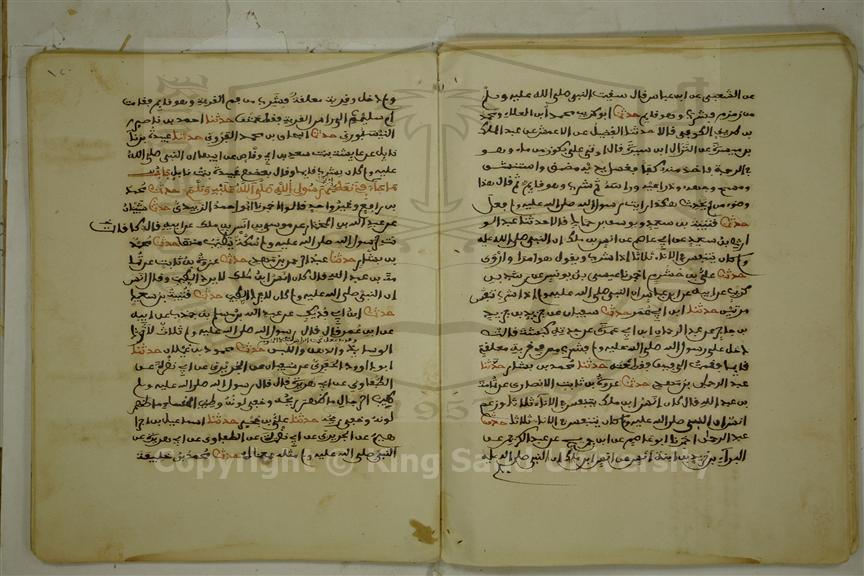 عن الشعبي عن ابن عباس قال سقيت النبي صلى الله عليه وسلم
من زمزم فشرب وهو قايم حدثنا ابو كريب محمد بن العلاء ومحمد
بن طريف الكوفي قالا حدثنا الفضيل عن الاعمش عن عبد الملك
بن ميسرة عن النزال ابن سبرة قال اتي علي بكوز من ماء وهو
في الرحبة فاخذ منه كفا فغسل يديه ومضمض واستنشق
ومسح وجهه وذراعيه وراسه ثم شرب وهو قايم ثم قال هذا
وضوء من لم يحدث هكذا رايت رسول الله صلى الله عليه وسلم فعل
حدثنا قتيبة بن سعيد ويوسف بن حماد قالا حدثنا عبد الو
ارث بن سعيد عن ابي عاصم عن انس بن ملك ان النبي صلى الله عليه
وسلم كان يتنفس في الاناء ثلاثا اذا شرب ويقول هو امرا واروى
حدثنا علي بن خشرم اخبرنا عيسى بن يونس عن رشدين بن
كريب عن ابيه عن ابن عباس ان النبي صلى الله عليه وسلم اذا شرب تنفس
مرتين حدثنا ابن ابي عمر حدثنا سفيان عن يزيد بن يزيد
بن جابر عن عبد الرحمان بن ابي عمرة عن جدته كبشة قالت
دخل علي رسول الله صلى الله عليه وسلم فشرب من في قربة معلقة
قايما فقمت الى فيها فقطعته حدثنا محمد بن بشار حدثنا
عبد الرحمان بن مهدي حدثنا عزرة بن ثابت الانصاري عن ثمامة
بن عبد الله قال كان انس ابن ملك يتنفس في الاناء ثلاثا وزعم
انس ان النبي صلى الله عليه وسلم كان يتنفس في الاناء ثلاثا حدثنا
عبد الرحمان اخبرنا ابو عاصم عن ابن جريج عن عبد الكريم عن
البراء بن زيد بن ابنة انس عن انس ابن ملك ان النبي صلى الله عليه
وسلم دخل وقربة معلقة فشرب من فم القربة وهو قايم فقامت
ام سليم الى راس القربة فقطعته حدثنا احمد بن نصر
النيسبوري حدثنا اسحاق بن محمد الفروي حدثنا عبيدة بنت
نابل عن عايشة بنت سعد بن ابي وقاص عن ابيها ان النبي صلى الله
عليه وسلم كان يشرب قايما وقال بعضهم عبيدة بنت نابل باب
ما جاء في تعطر رسول الله صلى الله عليه وسلم حدثنا محمد
بن رافع وغير واحد قالوا اخبرنا ابو احمد الزبيري حدثنا شيبان
عن عبد الله بن المختار عن موسى بن انس بن ملك عن ابيه قال كانت
لرسول الله صلى الله عليه وسلم سكة يتطيب منها حدثنا محمد
بن بشار حدثنا عبد الرحمن بن مهدي حدثنا عزرة بن ثابت عن ثما
مة بن عبد الله قال كان انس ابن ملك لا يرد الطيب وقال انس
ان النبي صلى الله عليه وسلم كان لا يرد الطيب حدثنا قتيبة بن سعيد
حدثنا ابن ابي فديك عن عبد الله بن مسلم بن جندب عن ابيه
عن ابن عمر قال قال رسول الله صلى الله عليه وسلم ثلاث لا ترد
الوسايد والدهن واللبن حدثنا محمود بن غيلان حدثنا
ابو داوود الحفري عن سفيان عن الجريري عن ابي نضرة عن
الطفاوي عن ابي هريرة قال قال رسول الله صلى الله عليه وسلم
طيب الرجال ما ظهر ريحه وخفي لونه وطيب النساء ما ظهر
لونه وخفي ريحه حدثنا علي بن حجر حدثنا اسماعيل بن ابرا
هيم عن الجريري عن ابي نضرة عن الطفاوي عن ابي هريرة عن
النبي صلى الله عليه وسلم مثله بمعناه حدثنا محمد بن خليفة
Copyright © King Saud University